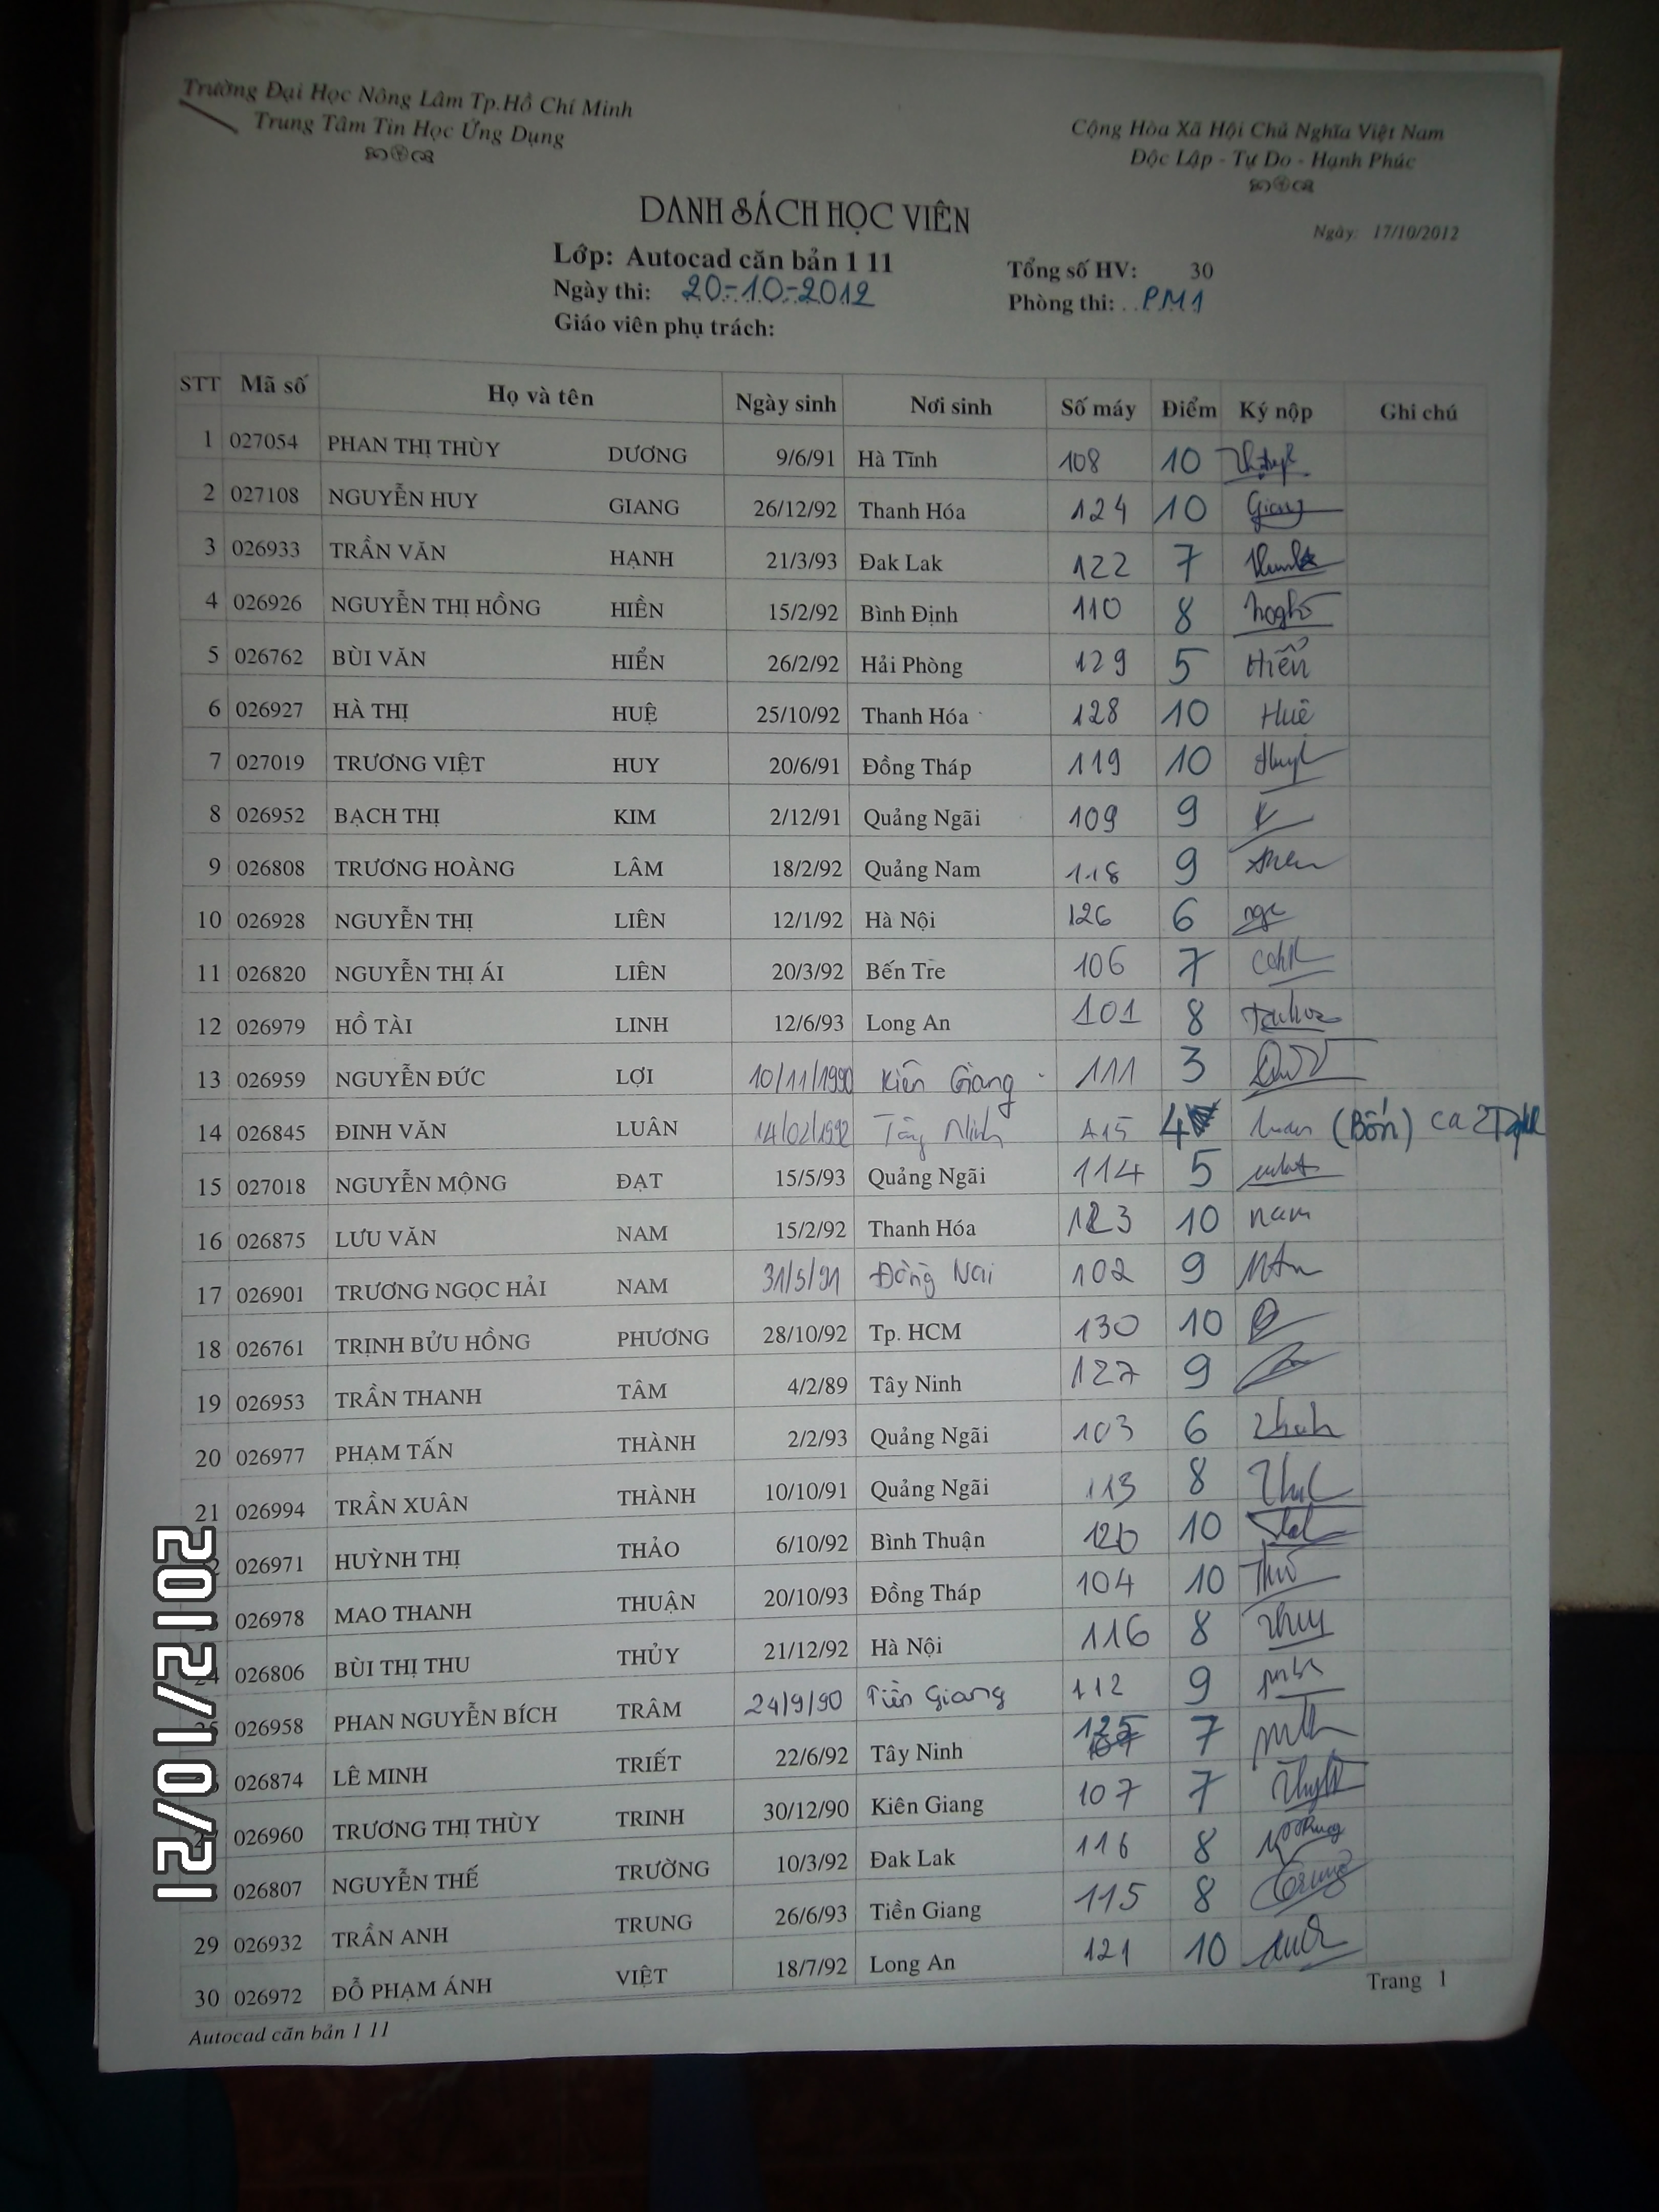 Trường Đại Học Nông Lâm Tp.Hồ Chí Minh
Trung Tâm Tin Học Ứng Dụng
Cộng Hòa Xã Hội Chủ Nghĩa Việt Nam
Độc Lập - Tự Do - Hạnh Phúc
DANH SÁCH HỌC VIÊN
Ngày: 17/10/2012
Lớp: Autocad căn bản 1 11
Tổng số HV: 30
Ngày thi: 20-10-2012
Phòng thi: PM1
Giáo viên phụ trách:
STT Mã số Họ và tên Ngày sinh Nơi sinh Số máy Điểm Ký nộp Ghi chú
1 027054 PHAN THỊ THÙY DƯƠNG 9/6/91 Hà Tĩnh 108 10
2 027108 NGUYỄN HUY GIANG 26/12/92 Thanh Hóa 124 10 Giang
3 026933 TRẦN VĂN HẠNH 21/3/93 Đak Lak 122 7
4 026926 NGUYỄN THỊ HỒNG HIỀN 15/2/92 Bình Định 110 8
5 026762 BÙI VĂN HIỂN 26/2/92 Hải Phòng 129 5 Hiển
6 026927 HÀ THỊ HUỆ 25/10/92 Thanh Hóa 128 10 Huê
7 027019 TRƯƠNG VIỆT HUY 20/6/91 Đồng Tháp 119 10
8 026952 BẠCH THỊ KIM 2/12/91 Quảng Ngãi 109 9
9 026808 TRƯƠNG HOÀNG LÂM 18/2/92 Quảng Nam 118 9
10 026928 NGUYỄN THỊ LIÊN 12/1/92 Hà Nội 126 6
11 026820 NGUYỄN THỊ ÁI LIÊN 20/3/92 Bến Tre 106 7
12 026979 HỒ TÀI LINH 12/6/93 Long An 101 8
13 026959 NGUYỄN ĐỨC LỢI 10/11/1990 Kiên Giang 111 3
14 026845 ĐINH VĂN LUÂN 14/02/1992 Tây Ninh A15 4 luan (Bốn) ca 2
15 027018 NGUYỄN MỘNG ĐẠT 15/5/93 Quảng Ngãi 114 5
16 026875 LƯU VĂN NAM 15/2/92 Thanh Hóa 123 10 nam
17 026901 TRƯƠNG NGỌC HẢI NAM 31/5/91 Đồng Nai 102 9
18 026761 TRỊNH BỬU HỒNG PHƯƠNG 28/10/92 Tp. HCM 130 10
19 026953 TRẦN THANH TÂM 4/2/89 Tây Ninh 127 9
20 026977 PHẠM TẤN THÀNH 2/2/93 Quảng Ngãi 103 6
21 026994 TRẦN XUÂN THÀNH 10/10/91 Quảng Ngãi 113 8
2 026971 HUỲNH THỊ THẢO 6/10/92 Bình Thuận 120 10
026978 MAO THANH THUẬN 20/10/93 Đồng Tháp 104 10
24 026806 BÙI THỊ THU THỦY 21/12/92 Hà Nội 116 8 thuy
25 026958 PHAN NGUYỄN BÍCH TRÂM 24/9/90 Tiền Giang 112 9
026874 LÊ MINH TRIẾT 22/6/92 Tây Ninh 125 7
2 026960 TRƯƠNG THỊ THÙY TRINH 30/12/90 Kiên Giang 107 7
026807 NGUYỄN THẾ TRƯỜNG 10/3/92 Đak Lak 116 8
29 026932 TRẦN ANH TRUNG 26/6/93 Tiền Giang 115 8 Trung
30 026972 ĐỖ PHẠM ÁNH VIỆT 18/7/92 Long An 121 10
Trang 1
Autocad căn bản 1 11
2012/10/21